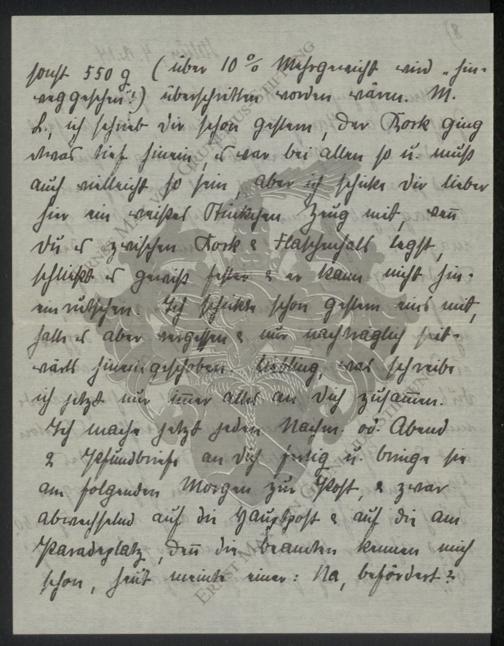 8)
sonst 550 g (über 10% Mehrgewicht wird „hin-
weggesehen“!) überschritten worden wären. M.
L., ich schrieb Dir schon gestern, der Kork ging
etwas tief hinein, es war bei allen so u. muß
auch vielleicht so sein, aber ich schicke Dir lieber
hier ein weißes Stückchen Zeug mit, wenn
Du es zwischen Kork & Flaschenhals legst,
schließt es gewiß fester & er kann nicht hin-
einrutschen. Ich schickte schon gestern eins mit,
hatte es aber vergessen & nur nachträglich seit-
wärts hineingeschoben. Liebling, was schreibe
ich jetzt nur immer alles an Dich zusammen.
Ich mache jetzt jeden Nachm. od. Abend
2 Pfundbriefe an Dich fertig u. bringe sie
am folgenden Morgen zur Post, & zwar
abwechselnd auf die Hauptpost & auf die am
Paradeplatz, denn die Beamten kennen mich
schon, heut meinte einer: Na, befördert?
ERNST MAX VON GRUNELIUS-STIFTUNG
ERNST MAX VON GRUNELIUS-STIFTUNG